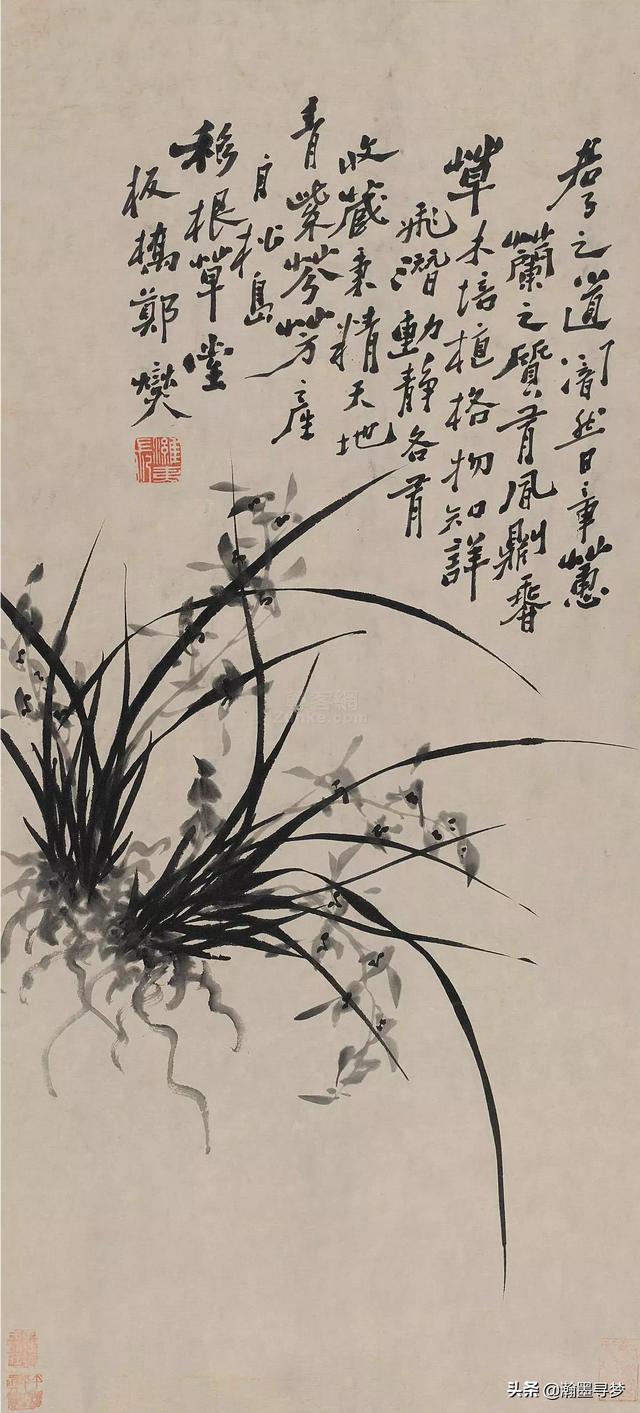 君子之道闇然日章蕙
蘭之質有風劘香
草木培植格物知詳
飛潛動靜各有
收藏秉精天地
青紫芬芳產
自松島
移根草堂
板橋鄭燮
濰夷長
頭条 @瀚墨寻梦